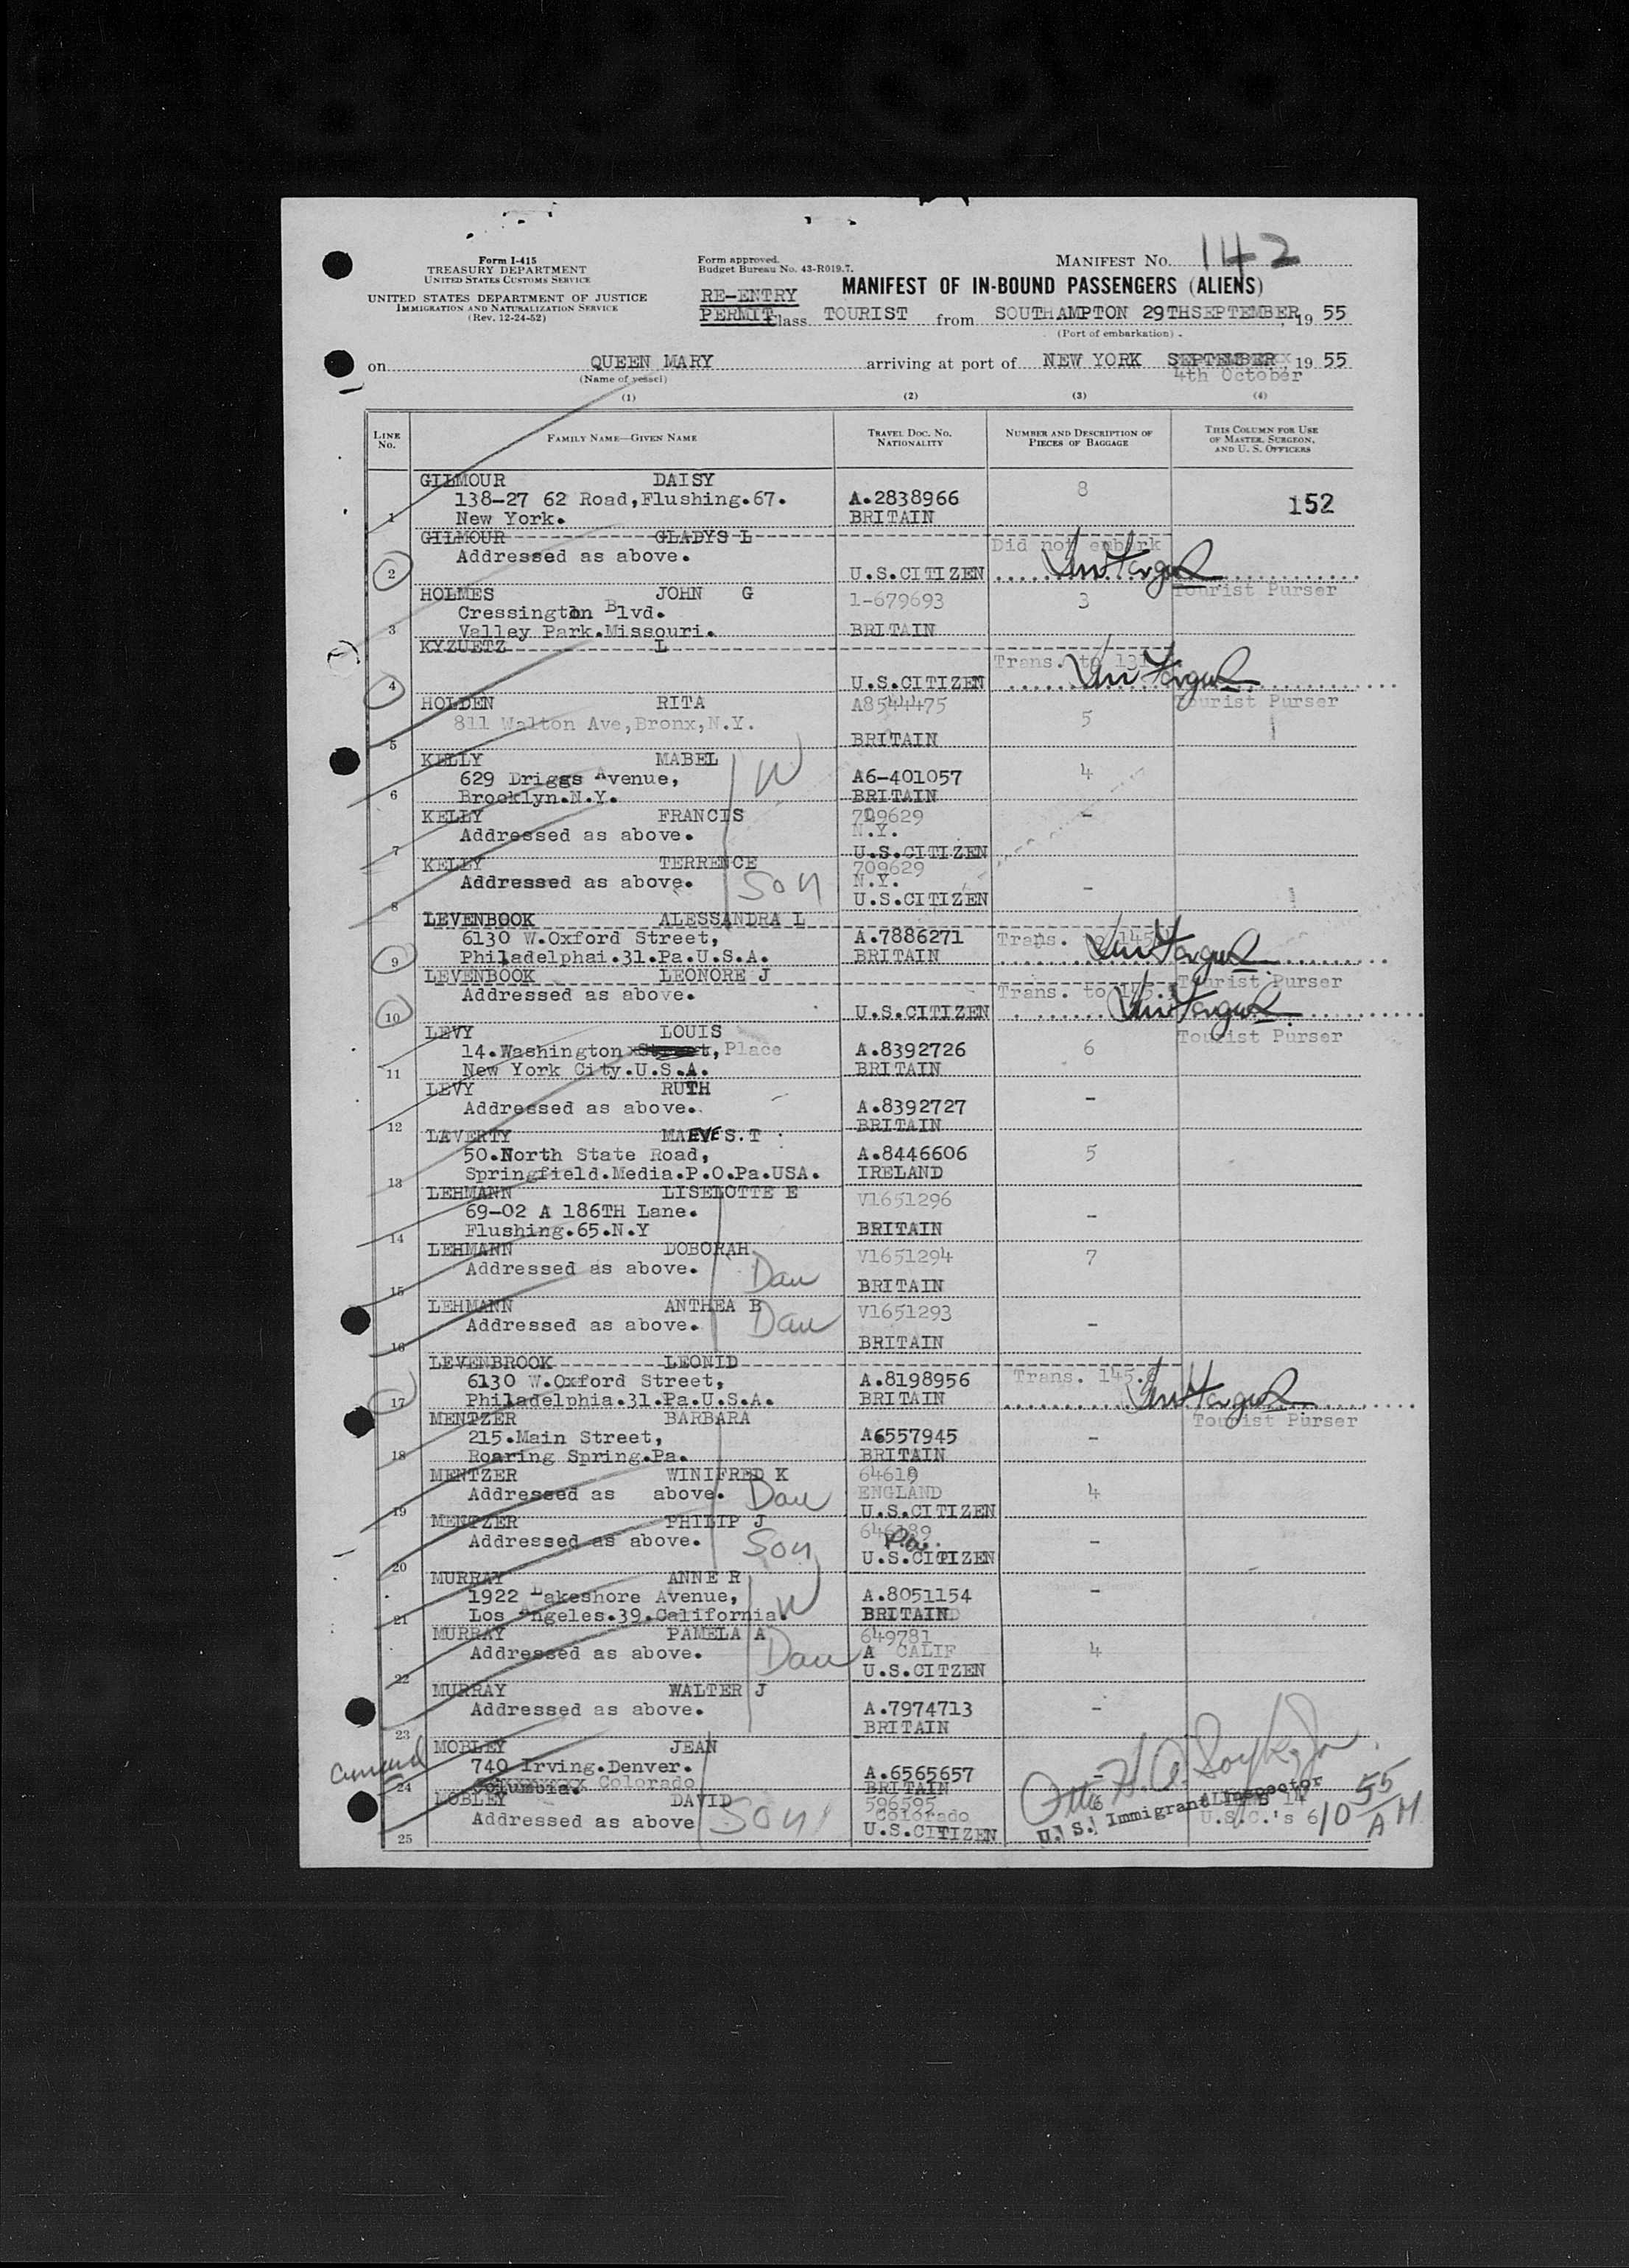 Form I-415
TREASURY DEPARTMENT
UNITED STATES CUSTOMS SERVICE
UNITED STATES DEPARTMENT OF JUSTICE
IMMIGRATION AND NATURALIZATION SERVICE
(Rev. 12-24-52)
Form approved.
Budget Bureau No. 43-R019.7.
MANIFEST No. 142
MANIFEST OF IN-BOUND PASSENGERS (ALIENS)
RE-ENTRY
PERMIT Class TOURIST from SOUTHAMPTON 29THSEPTEMBER, 19 55
(Port of embarkation)
on QUEEN MARY arriving at port of NEW YORK SEPTEMBER 19 55
(Name of vessel) 4th October
(1) (2) (3) (4)
LINE No. FAMILY NAME—GIVEN NAME TRAVEL DOC. NO. NATIONALITY NUMBER AND DESCRIPTION OF PIECES OF BAGGAGE THIS COLUMN FOR USE OF MASTER, SURGEON, AND U. S. OFFICERS
GILMOUR DAISY 8
138-27 62 Road,Flushing.67. A.2838966 152
1 New York. BRITAIN
GILMOUR GLADYS L Did not embark
Addressed as above.
2 U.S.CITIZEN
Tourist Purser
HOLMES JOHN G 1-679693 3
Cressington Blvd.
3 Valley Park.Missouri. BRITAIN
KYZUETZ L Trans. to 131
4 U.S.CITIZEN
Tourist Purser
HOLDEN RITA A8544475
811 Walton Ave,Bronx,N.Y. 5
5 BRITAIN
KELLY MABEL W 4
629 Driggs Avenue, A6-401057
6 Brooklyn.N.Y. BRITAIN
KELLY FRANCIS 709629 -
Addressed as above. N.Y.
7 U.S.CITIZEN
KELLY TERRENCE 709629
Addressed as above. Son N.Y. -
8 U.S.CITIZEN
LEVENBOOK ALESSANDRA L
6130 W.Oxford Street, A.7886271 Trans. to 145
9 Philadelphai.31.Pa.U.S.A. BRITAIN
Tourist Purser
LEVENBOOK LEONORE J Trans. to 145.
Addressed as above.
10 U.S.CITIZEN
Tourist Purser
LEVY LOUIS
14.Washington Street, Place A.8392726 6
11 New York City.U.S.A. BRITAIN
LEVY RUTH
Addressed as above. A.8392727 -
12 BRITAIN
LAVERTY MAEVE S.T
50.North State Road, A.8446606 5
13 Springfield.Media.P.O.Pa.USA. IRELAND
LEHMANN LISELOTTE E V1651296
69-02 A 186TH Lane. -
14 Flushing.65.N.Y BRITAIN
LEHMANN DOBORAH V1651294 7
Addressed as above. Dau
15 BRITAIN
LEHMANN ANTHEA B V1651293
Addressed as above. Dau -
16 BRITAIN
LEVENBROOK LEONID
6130 W.Oxford Street, A.8198956 Trans. 145.6
17 Philadelphia.31.Pa.U.S.A. BRITAIN
Tourist Purser
MENTZER BARBARA
215.Main Street, A6557945 -
18 Roaring Spring.Pa. BRITAIN
MENTZER WINIFRED K 64619
Addressed as above. Dau ENGLAND 4
19 U.S.CITIZEN
MENTZER PHILIP J 646189
Addressed as above. Son Pa. -
20 U.S.CITIZEN
MURRAY ANNE R
1922 Lakeshore Avenue, W A.8051154 -
21 Los Angeles.39.California. BRITAIN
MURRAY PAMELA A 649781
Addressed as above. Dau A CALIF 4
22 U.S.CITZEN
MURRAY WALTER J
Addressed as above. A.7974713 -
23 BRITAIN
MOBLEY JEAN
740 Irving.Denver. A.6565657 -
24 Columbia. Colorado BRITAIN
MOBLEY DAVID 596595 6
Addressed as above Son Colorado
25 U.S.CITIZEN
U. S. Immigrant Inspector
ALIENS 14
U.S.C.'s 6
10 55 AM